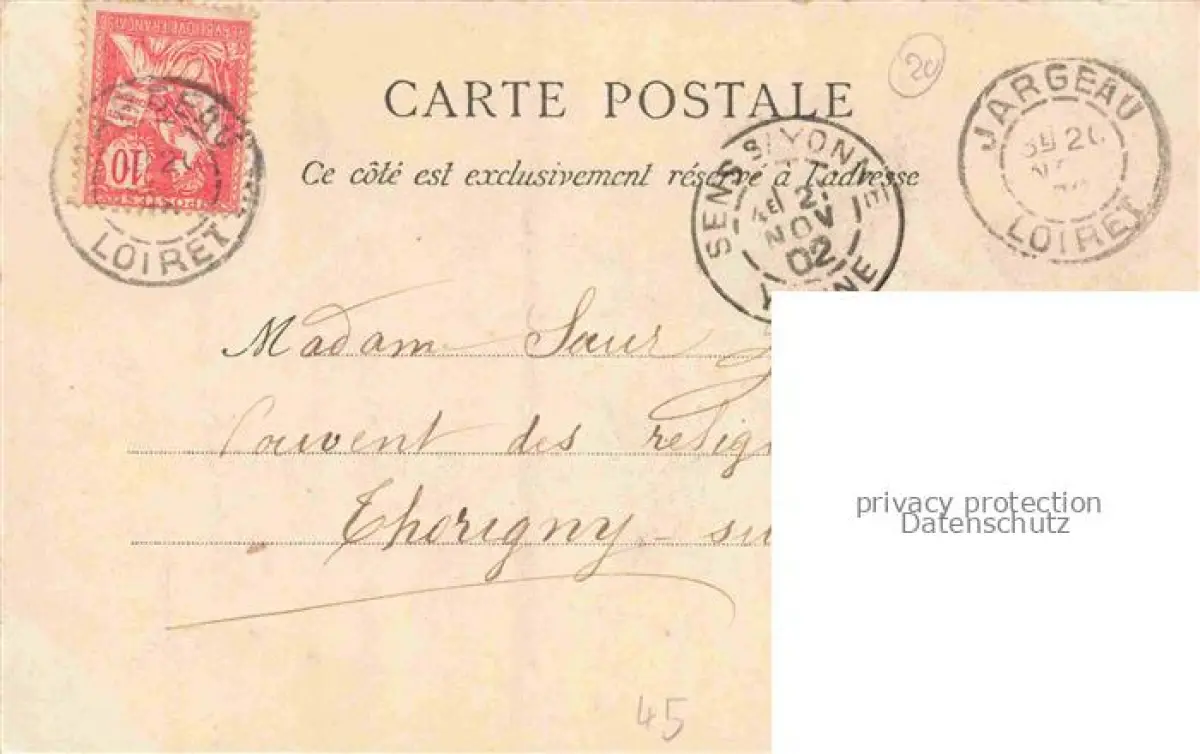 REPUBLIQUE FRANÇAISE
10
POSTES
LOIRET
CARTE POSTALE
20
JARGEAU
LOIRET
Ce côté est exclusivement réservé à l'adresse
SENS S/YONNE
NOV
02
YONNE
Madame Sœur
Couvent des relig
Thorigny - su
privacy protection
Datenschutz
45